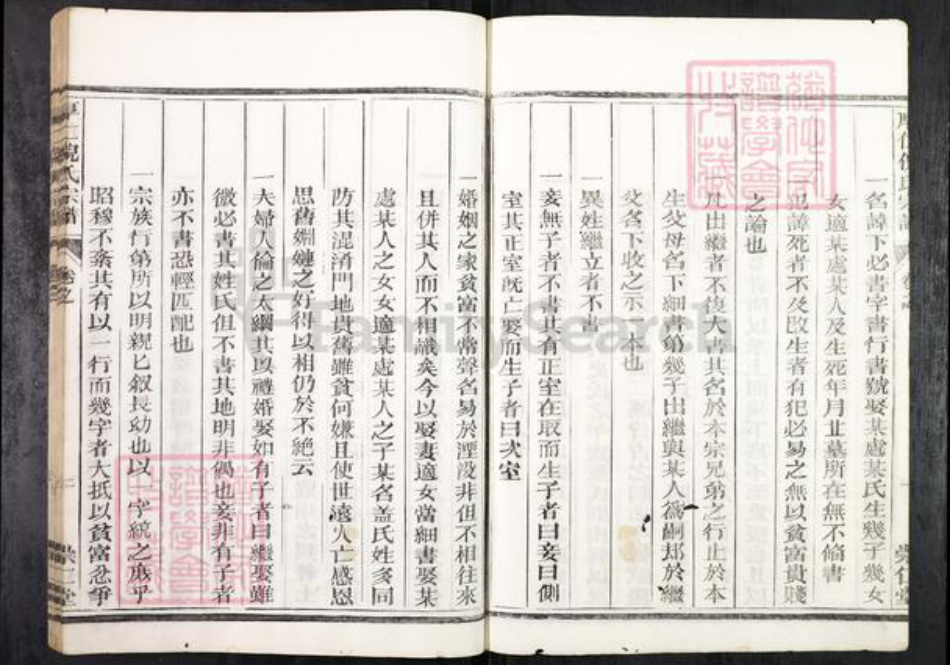 一名諱下必書字書行書號娶某處某氏生幾子幾女
女適某處某人及生死年月並墓所在無不備書
也諱死者不及改生者有犯必易之無以貧富貴賤
之論也
凡出繼者不復大書其名於本宗兄弟之行止於本
生父母名下細書第幾子出繼與某人為嗣却於繼
父名下收之示一本也
一異姓繼立者不書
一妾無子者不書其有正室在取而生子者曰妾曰側
室其正室旣亡娶而生子者曰次室
一婚姻之家貧富不常聲名易於湮沒非但不相往來
且併其人而不相識矣今以娶妻適女當細書娶某
處某人之女女適某處某人之子某名盖氏姓多同
防其混淆門地貴舊雖貧何嫌且使世遠人亡感恩
思舊姻縺之好得以相仍於不絕云
一夫婦人倫之大綱其以禮婚娶如有子者曰繼娶雖
微必書其姓氏但不書其地明非偶也妾非有子者
亦不書恐輕匹配也
一宗族行第所以明親匕叙長幼也以一字統之庶乎
昭穆不紊其有以一行而幾字者大抵以貧富忿爭
倪氏宗譜
FamilySearch